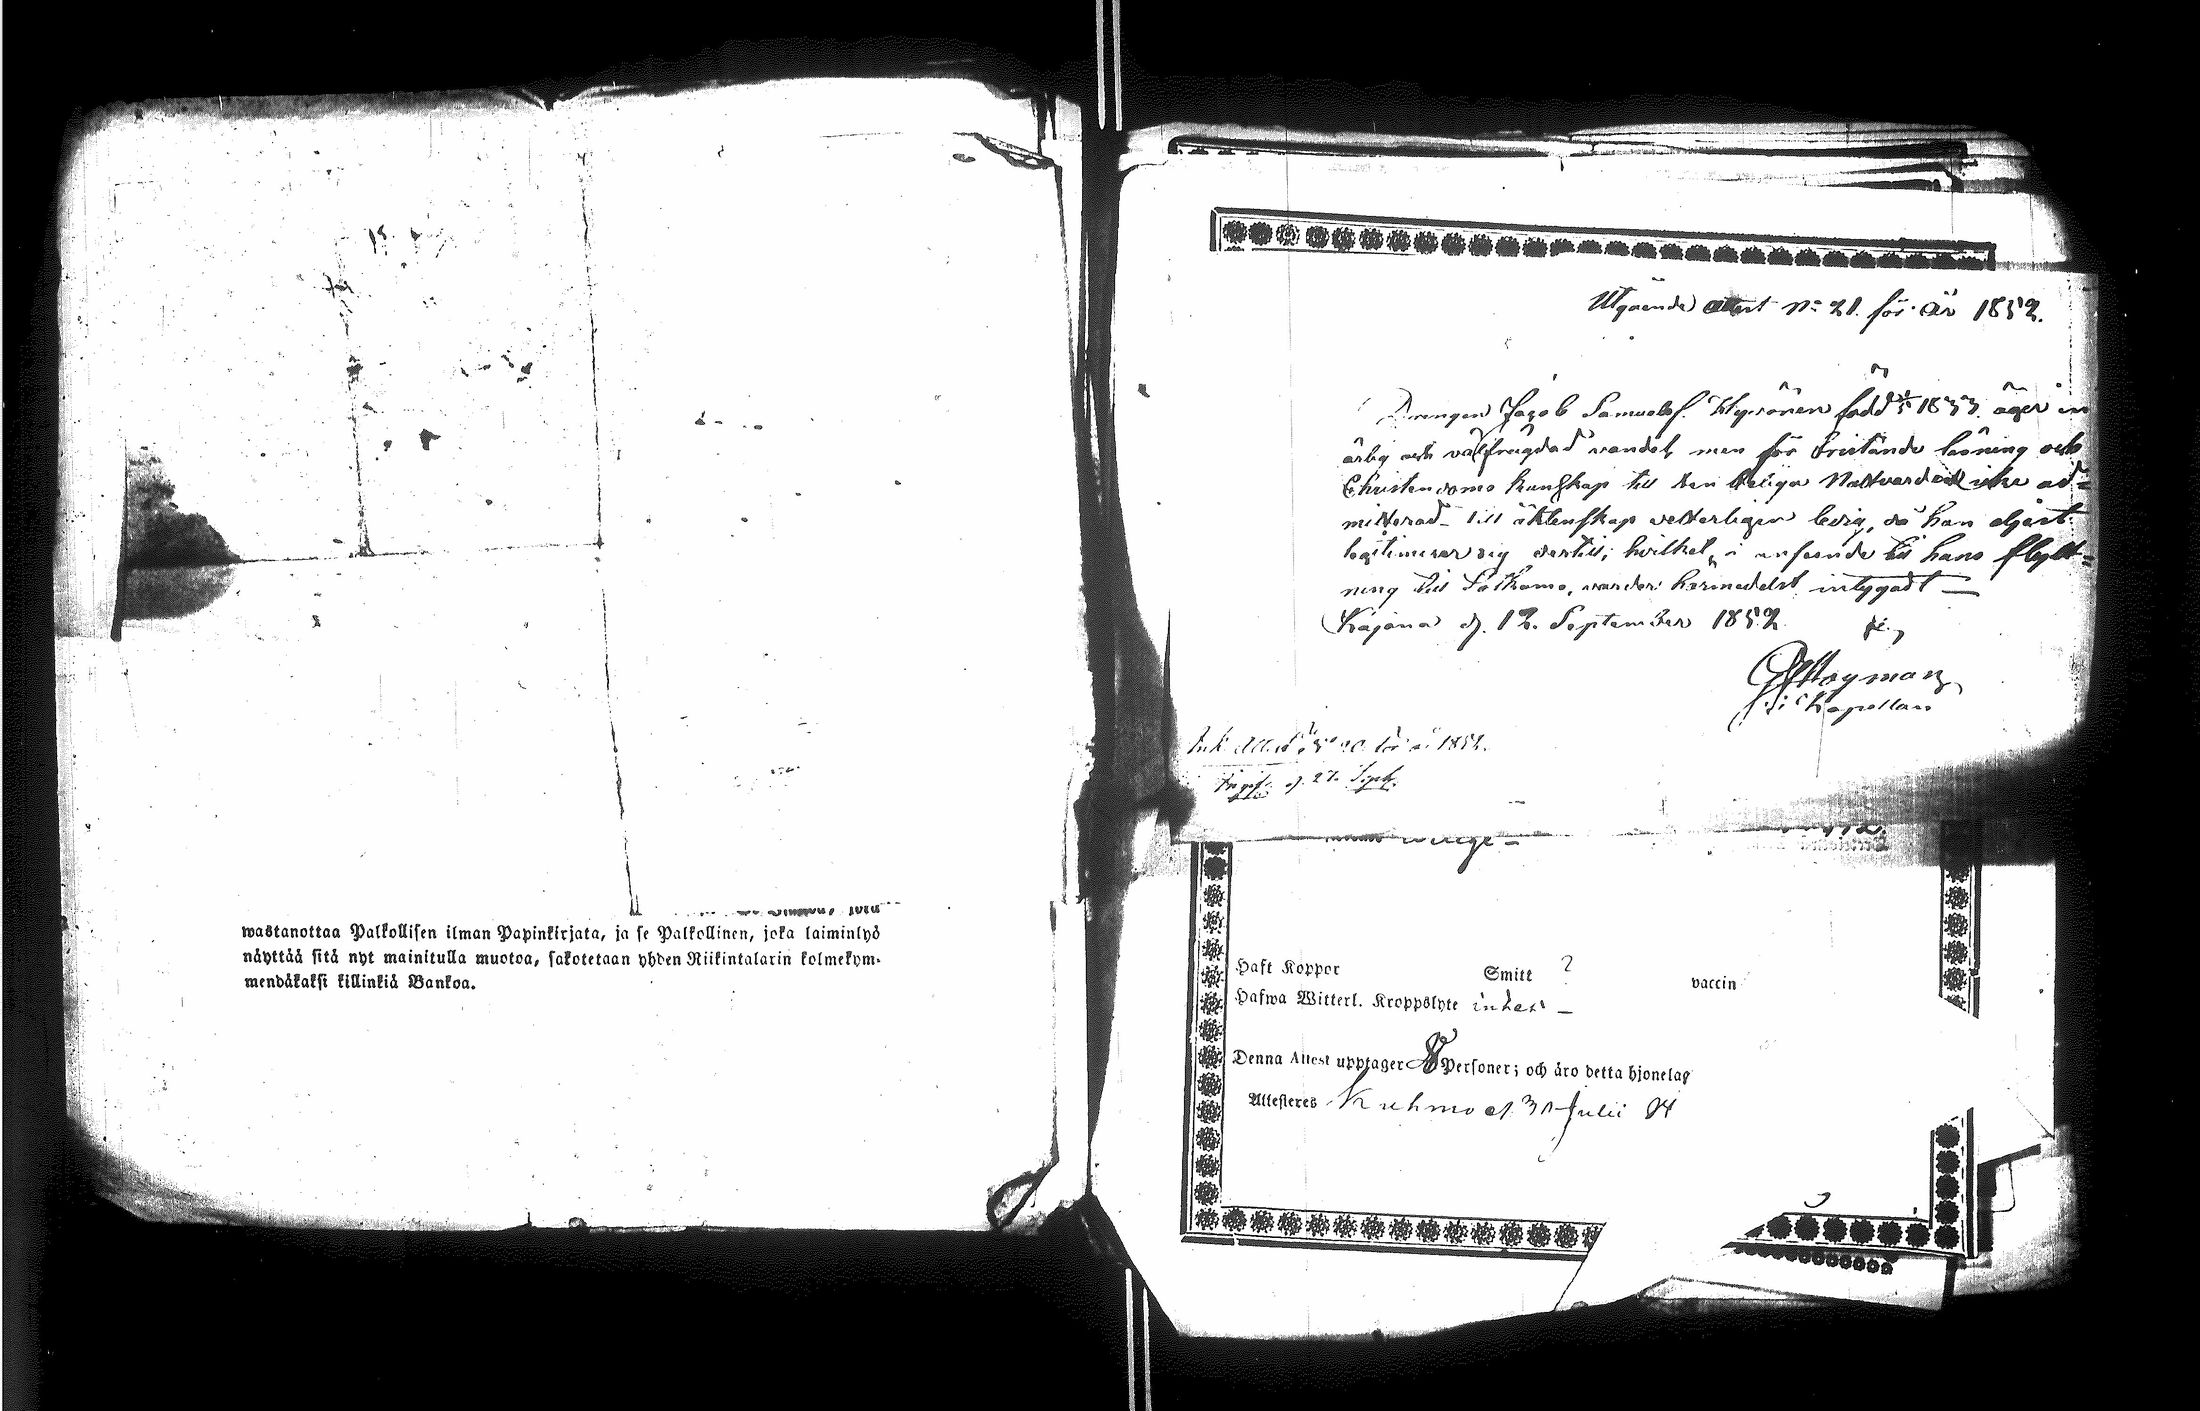 wastanottaa Palkollisen ilman Papinkirjata, ja se Palkollinen, joka laiminlyö
näyttää sitä nyt mainitulla muotoa, sakotetaan yhden Riikintalarin kolmekym-
mendäkaksi killinkiä Bankoa.
Utgående attest No 21. för år 1852.
Drengen Jacob Samuelsf. född 1833. äger en
ärlig och välfrägdad vandel, men för bristande läsning och
Christendoms kunskap till den heliga Nattvarden icke ad=
mitterad – till äktenskap vetterligen ledig, så han
legitimerar sig dertill; hvilket, i anseende till hans flytt=
ning till Sotkamo, varder härmedelst intygadt –
Kajana d. 12. September 1852.
Kapellan
för år 1852.
d. 27. Sept.
Haft Koppor Smitt ? vaccin
Hafwa Witterl. Kroppslyte intet –
Denna Attest upptager Personer; och äro detta hjonelag
Attesteres Kuhmo d. 31 Julii